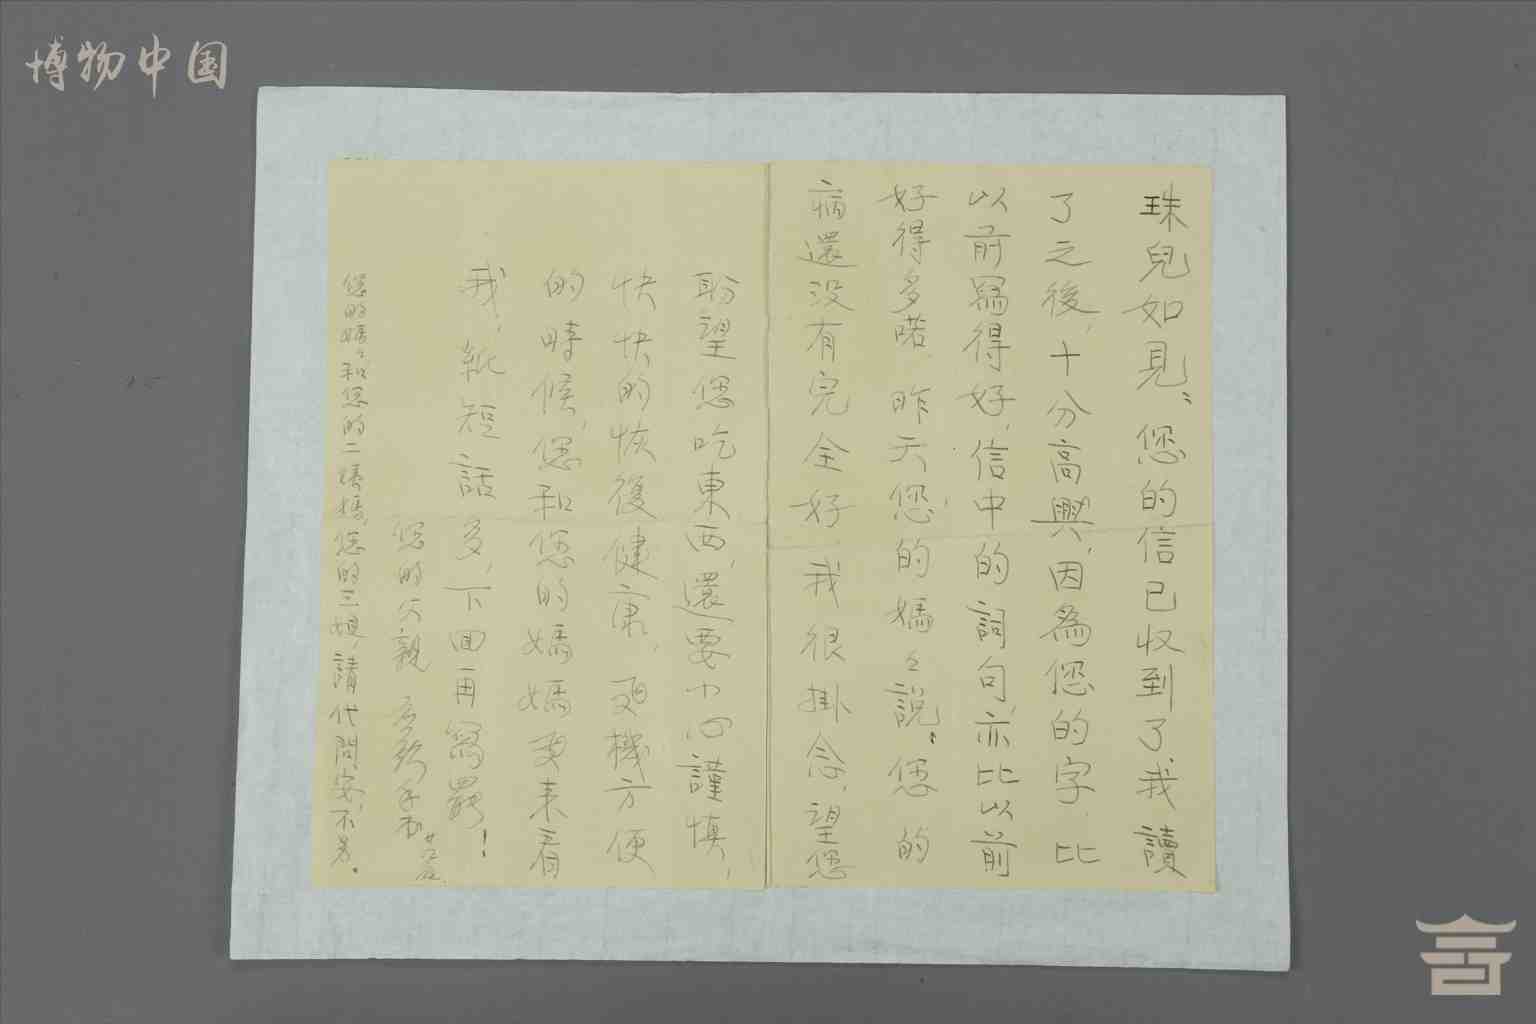 博物中国
珠兒如見：您的信已收到了我讀
了之後，十分高興，因為您的字，比
以前寫得好，信中的詞句，亦比以前
好得多喏，昨天您的媽々說：您的
病還沒有完全好，我很掛念，望您
盼望您吃東西，還要小心謹慎，
快快的恢復健康，
機方便
的時候，您和您的媽媽要来看
我，紙短話多，下回再寫罷！
您的父親 手書
您的媽々和您的二媽媽，您的三娘，請代問安，不另。